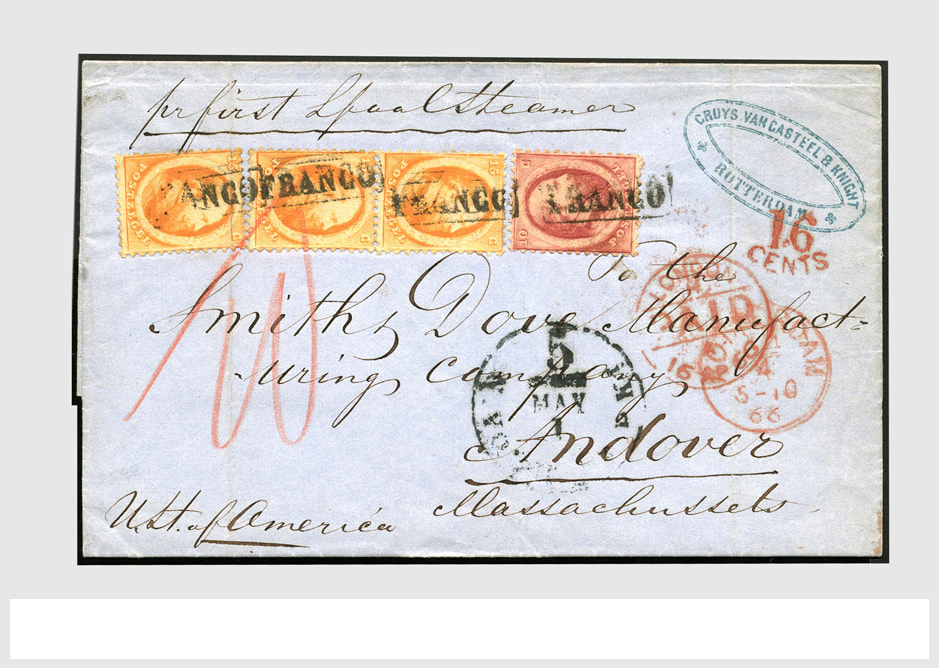 pr first Lpool Steamer
CRUYS, VAN CASTEEL & KNIGHT
ROTTERDAM
FRANCO
FRANCO
FRANCO
16
CENTS
To the
Smith & Dove Manufact-
uring company
Andover
Massachussets
U. St. of America
PAID
5
MAY
5-10
66